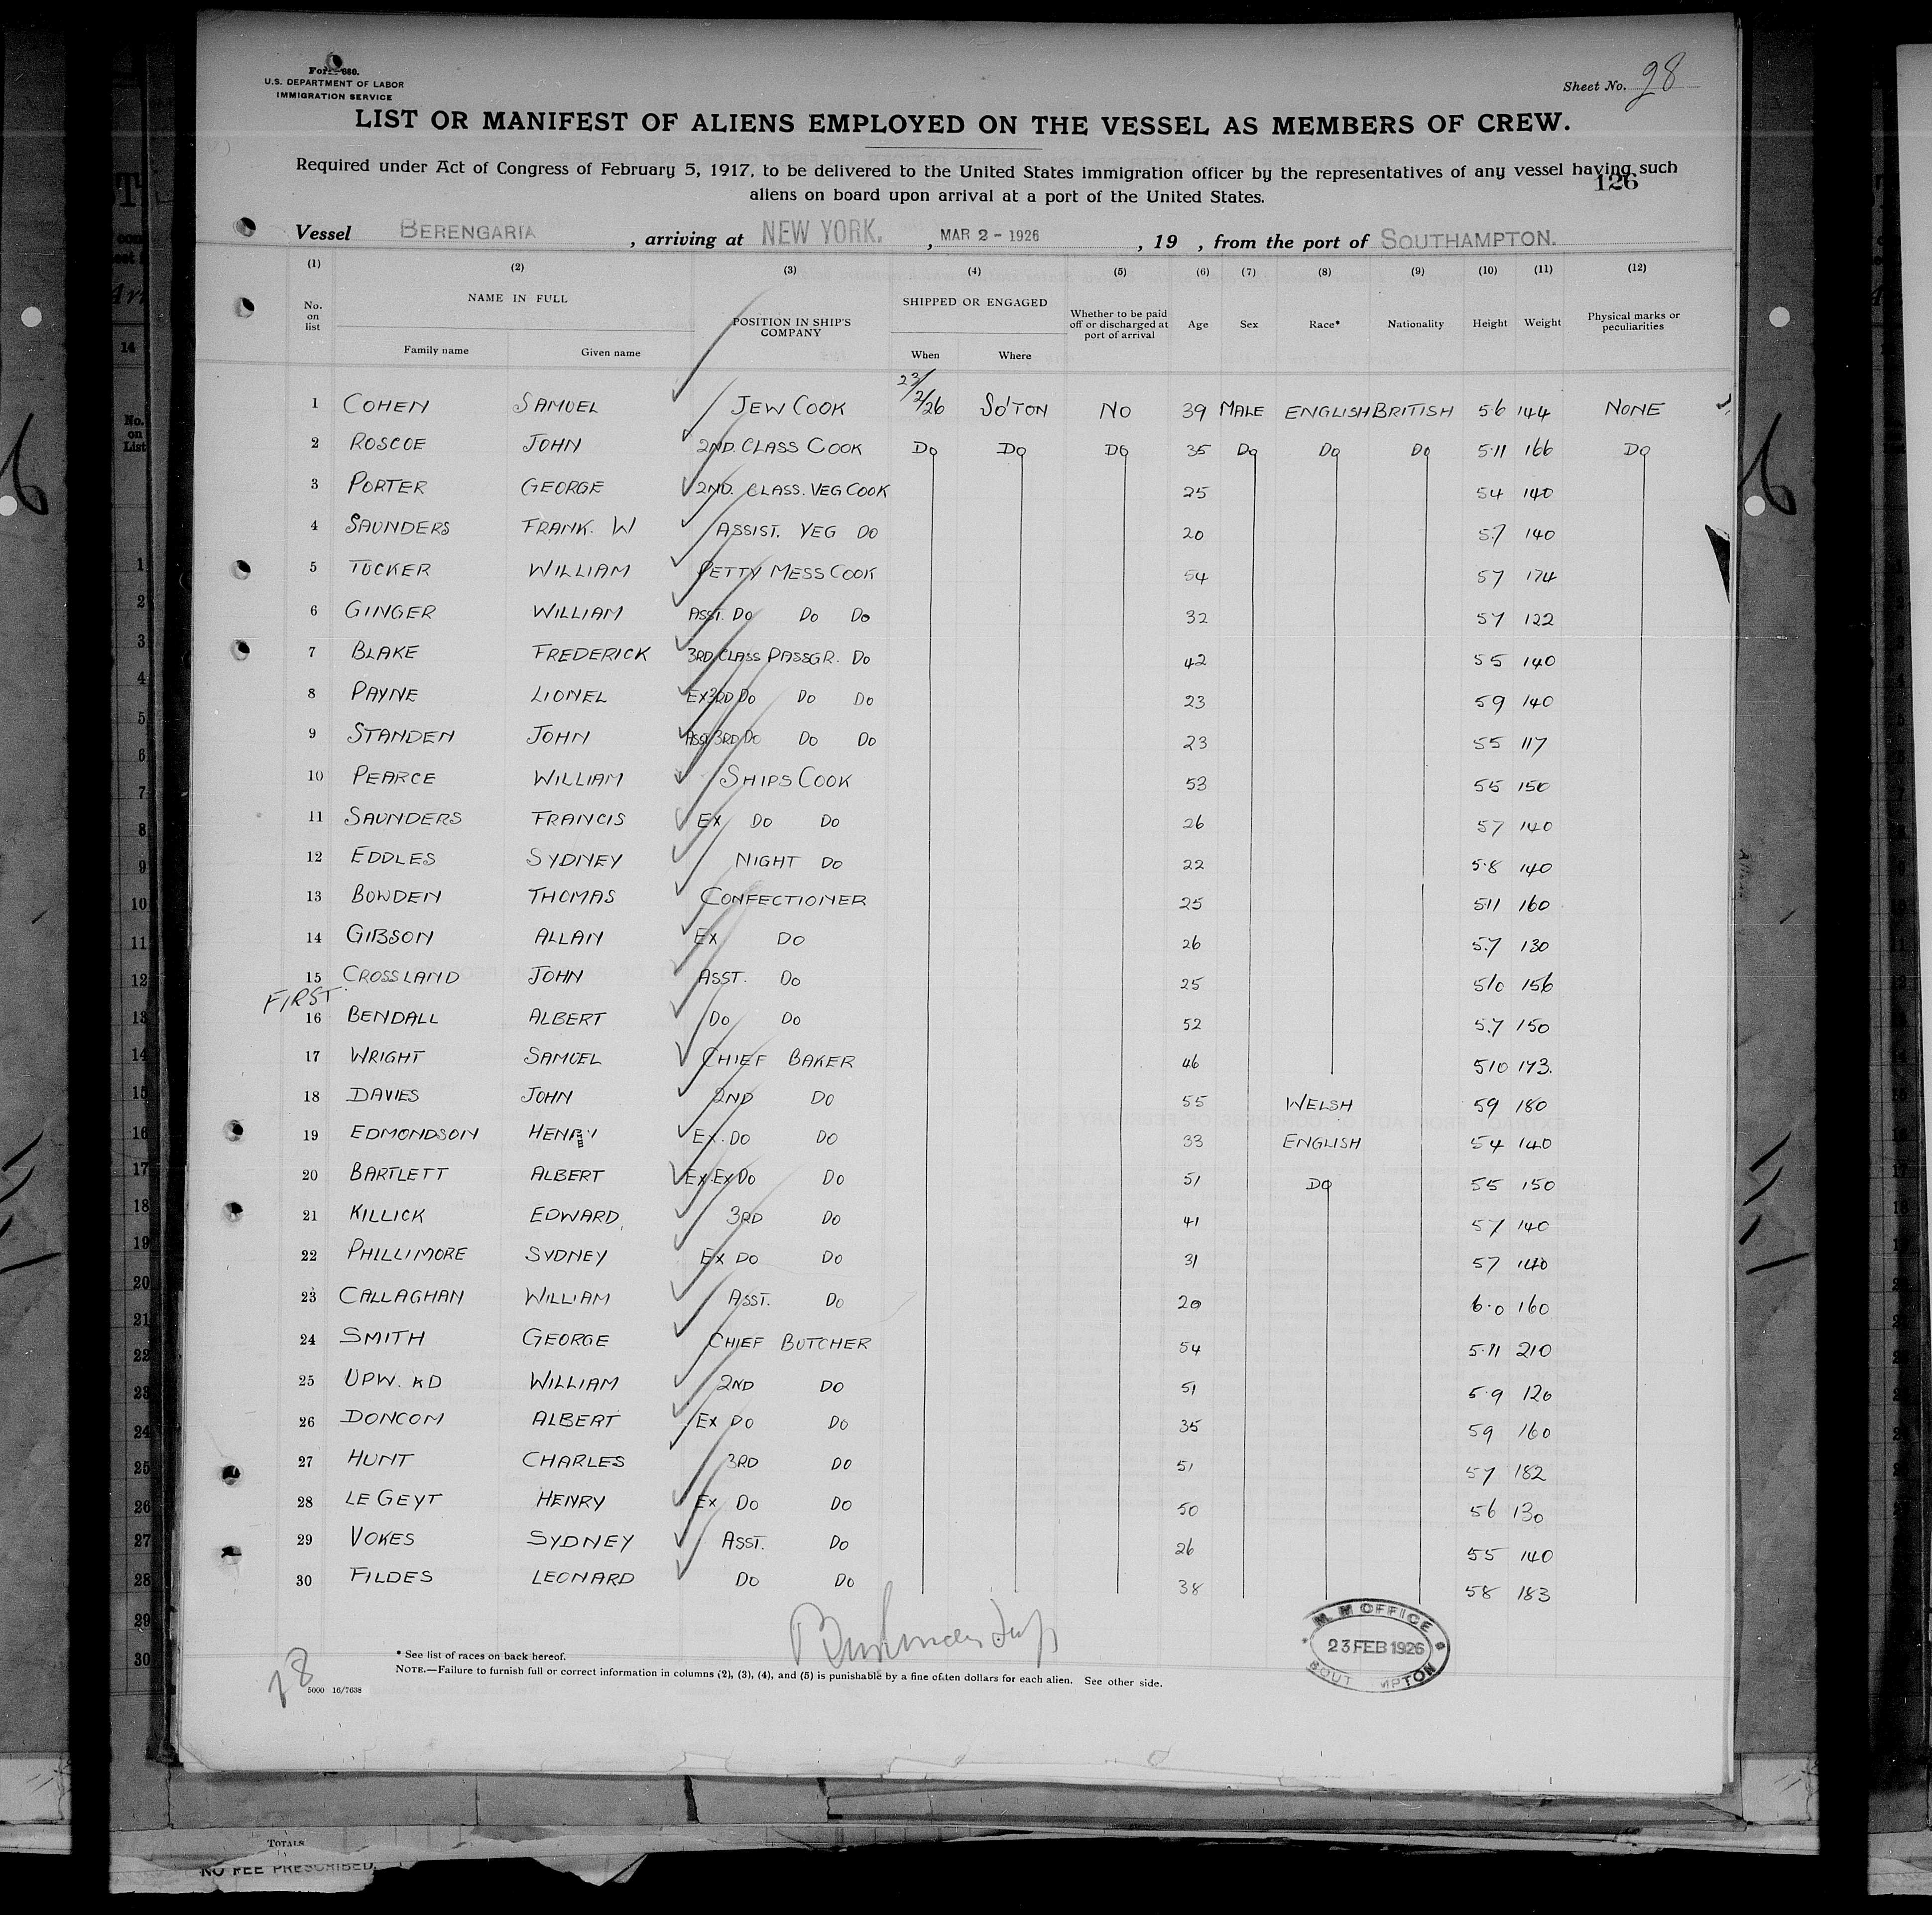 Form 680.
U.S. DEPARTMENT OF LABOR
IMMIGRATION SERVICE
Sheet No. 98
LIST OR MANIFEST OF ALIENS EMPLOYED ON THE VESSEL AS MEMBERS OF CREW.
Required under Act of Congress of February 5, 1917, to be delivered to the United States immigration officer by the representatives of any vessel having such
aliens on board upon arrival at a port of the United States.
126
Vessel BERENGARIA , arriving at NEW YORK. , MAR 2 - 1926 , 19 , from the port of SOUTHAMPTON.
(1) (2) (3) (4) (5) (6) (7) (8) (9) (10) (11) (12)
No. on list NAME IN FULL Family name Given name POSITION IN SHIP'S COMPANY SHIPPED OR ENGAGED When Where Whether to be paid off or discharged at port of arrival Age Sex Race* Nationality Height Weight Physical marks or peculiarities
1 COHEN SAMUEL JEW COOK 23/2/26 SO'TON NO 39 MALE ENGLISH BRITISH 5 6 144 NONE
2 ROSCOE JOHN 2ND. CLASS COOK DO DO DO 35 DO DO DO 5.11 166 DO
3 PORTER GEORGE 2ND. CLASS. VEG COOK 25 5 4 140
4 SAUNDERS FRANK. W ASSIST. VEG DO 20 5.7 140
5 TUCKER WILLIAM PETTY MESS COOK 54 5 7 174
6 GINGER WILLIAM ASST. DO DO DO 32 5 7 122
7 BLAKE FREDERICK 3RD CLASS PASSGR. DO 42 5 5 140
8 PAYNE LIONEL EX 3RD DO DO DO 23 5 9 140
9 STANDEN JOHN ASST 3RD DO DO DO 23 5 5 117
10 PEARCE WILLIAM SHIPS COOK 53 5 5 150
11 SAUNDERS FRANCIS EX DO DO 26 5 7 140
12 EDDLES SYDNEY NIGHT DO 22 5.8 140
13 BOWDEN THOMAS CONFECTIONER 25 5 11 160
14 GIBSON ALLAN EX DO 26 5.7 130
15 CROSSLAND JOHN ASST. DO 25 5 10 156
FIRST
16 BENDALL ALBERT DO DO 52 5.7 150
17 WRIGHT SAMUEL CHIEF BAKER 46 5 10 173.
18 DAVIES JOHN 2ND DO 55 WELSH 5 9 180
19 EDMONDSON HENRY EX. DO DO 33 ENGLISH 5 4 140
20 BARTLETT ALBERT EX. EX DO DO 51 DO 5 5 150
21 KILLICK EDWARD 3RD DO 41 5 7 140
22 PHILLIMORE SYDNEY EX DO DO 31 5 7 140
23 CALLAGHAN WILLIAM ASST. DO 20 6.0 160
24 SMITH GEORGE CHIEF BUTCHER 54 5.11 210
25 WILLIAM 2ND DO 51 5.9 120
26 DONCOM ALBERT EX DO DO 35 5 9 160
27 HUNT CHARLES 3RD DO 51 5 7 182
28 LE GEYT HENRY EX DO DO 50 5 6 130
29 VOKES SYDNEY ASST. DO 26 5 5 140
30 FILDES LEONARD DO DO 38 5 8 183
M. M OFFICE
23 FEB 1926
* See list of races on back hereof.
NOTE.—Failure to furnish full or correct information in columns (2), (3), (4), and (5) is punishable by a fine of ten dollars for each alien. See other side.
5000 16/7638
TOTALS
NO FEE PRESCRIBED.